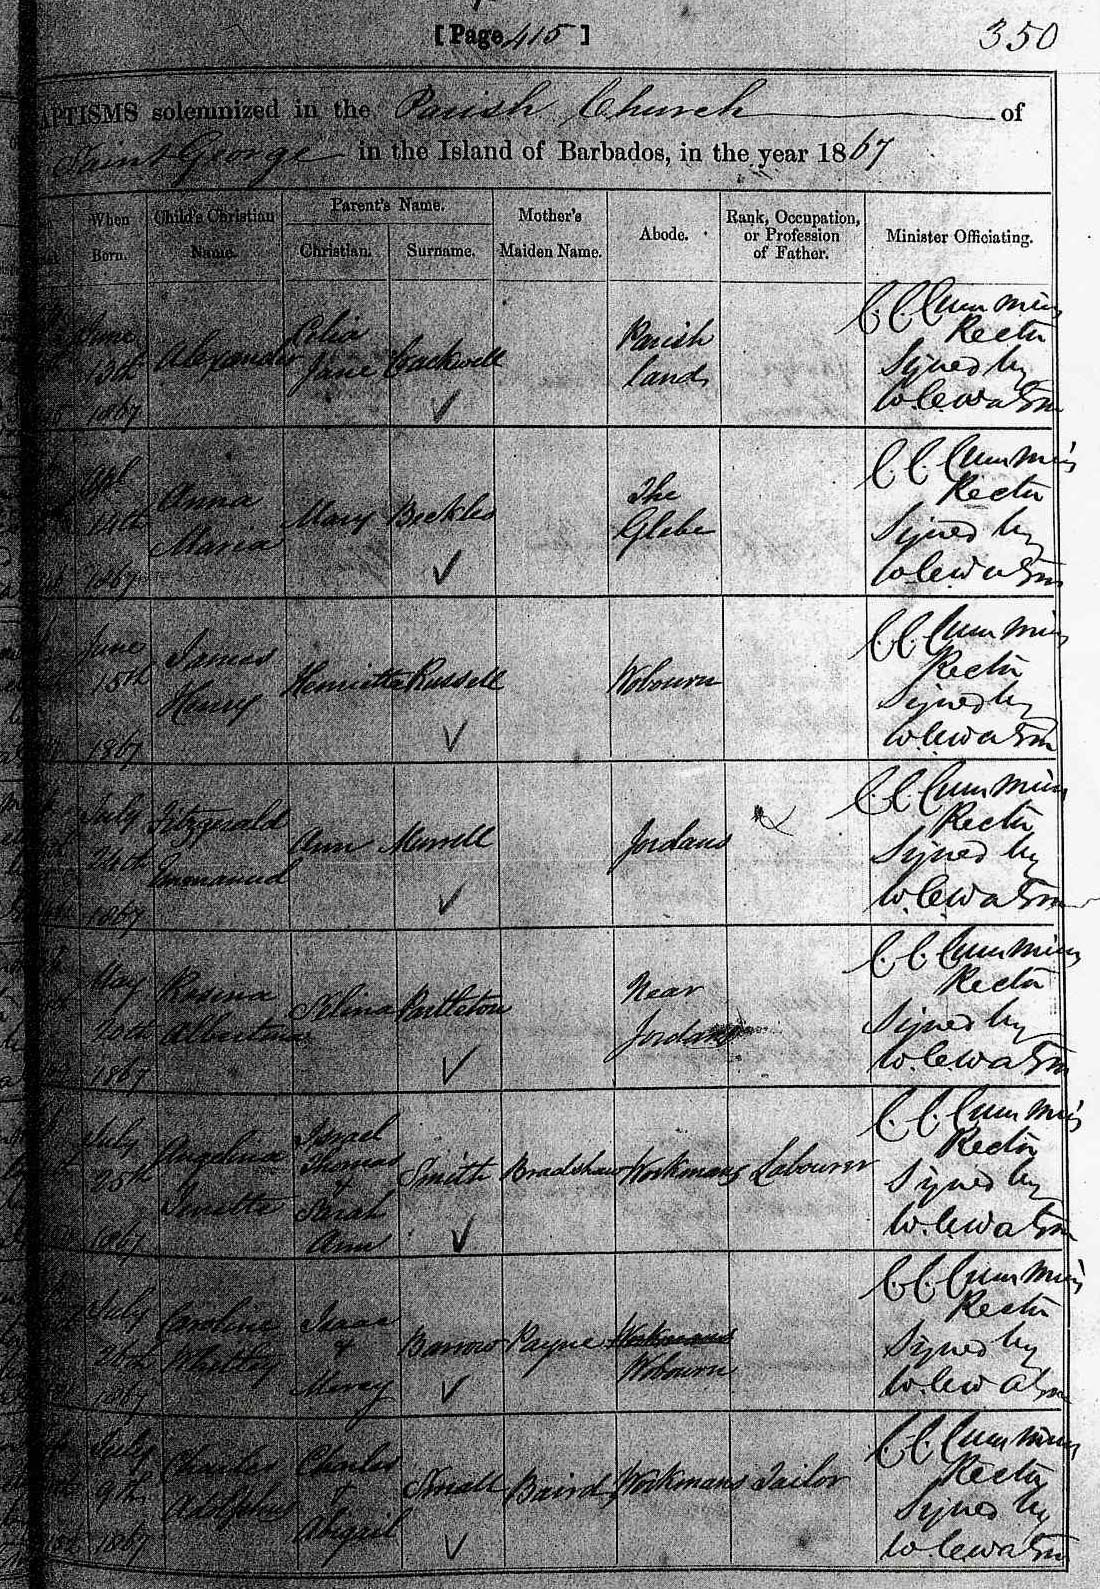 [ Page 415 ]
350
BAPTISMS solemnized in the Parish Church of
Saint George in the Island of Barbados, in the year 1867
When Born.
Child's Christian Name.
Parent's Name.
Christian.
Surname.
Mother's Maiden Name.
Abode.
Rank, Occupation, or Profession of Father.
Minister Officiating.
June 13th 1867
Alexander
Celia Jane
Cackwell
Parish lands
C. C. Cummins Rector
Signed by
W. C. Watson
Apl 14th 1867
Anna Maria
Mary
Beckles
The Glebe
C. C. Cummins Rector
Signed by
W. C. Watson
June 15th 1867
James Henry
Henrietta
Russell
Wobourn
C. C. Cummins Rector
Signed by
W. C. Watson
July 24th 1867
Fitzgerald Emmanuel
Ann
Murrell
Jordans
C. C. Cummins Rector
Signed by
W. C. Watson
May 20th 1867
Rosina Albertina
Selina
Near Jordans
C. C. Cummins Rector
Signed by
W. C. Watson
July 25th 1867
Angelina
Israel Thomas & Sarah Ann
Smith
Bradshaw
Workmans
Labourer
C. C. Cummins Rector
Signed by
W. C. Watson
July 26th 1867
Caroline
Isaac & Mercy
Barrow
Payne
Workmans
Wobourn
C. C. Cummins Rector
Signed by
W. C. Watson
July 9th 1867
Charles Adolphus
Charles & Abigail
Small
Baird
Workmans
Tailor
C. C. Cummins Rector
Signed by
W. C. Watson